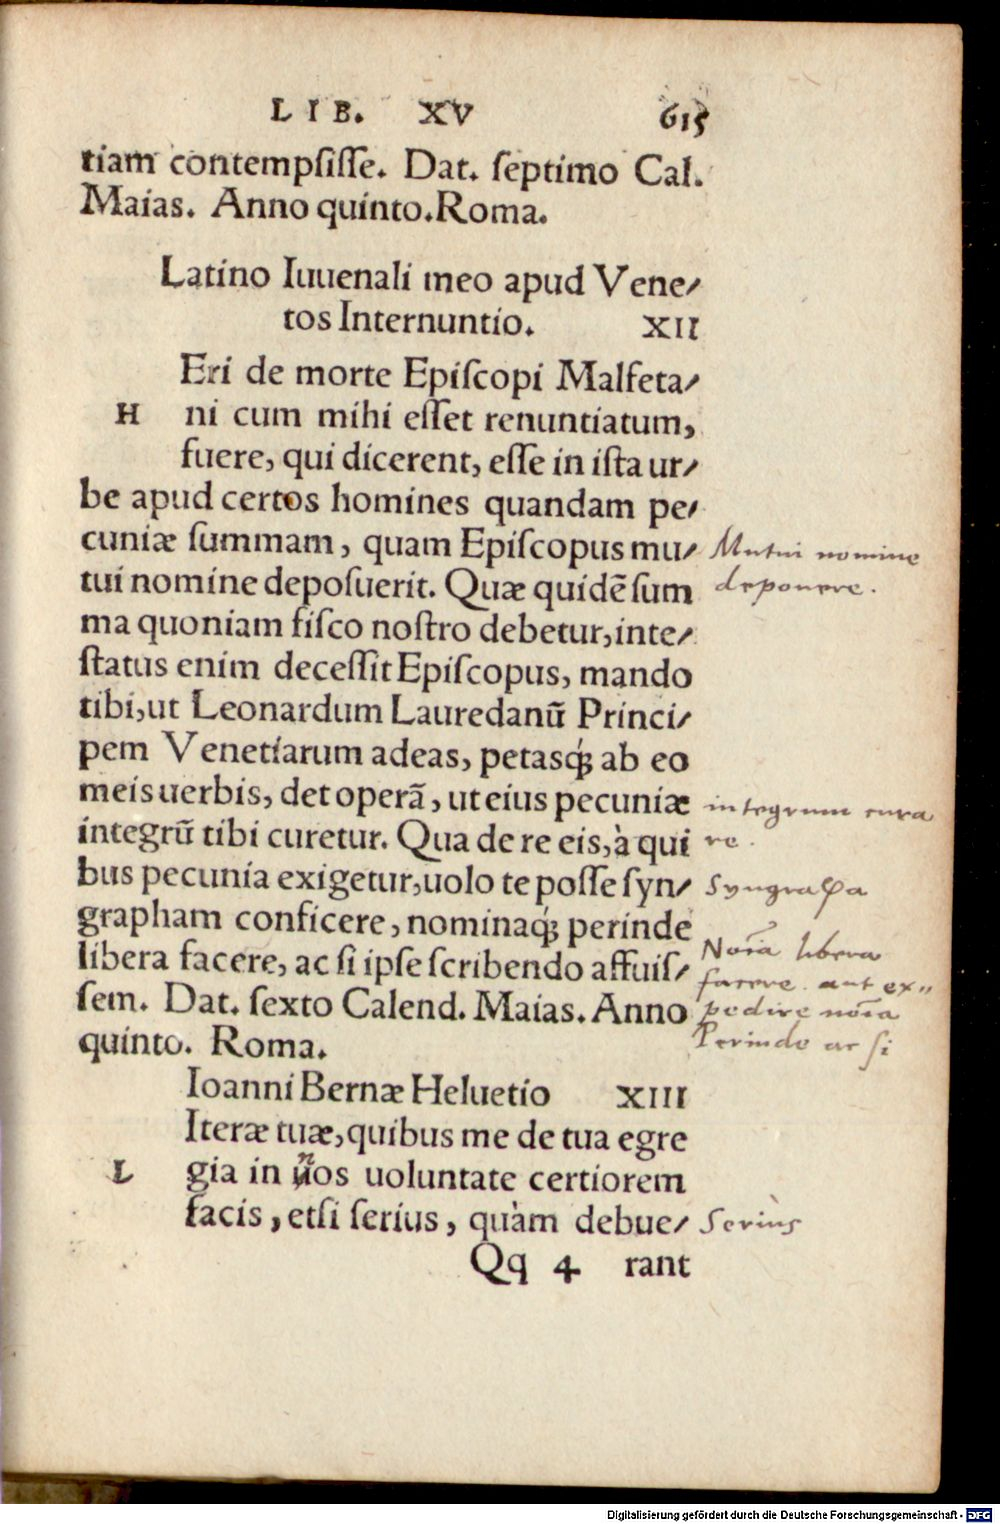 LIB. XV 615
tiam contempsisse. Dat. septimo Cal.
Maias. Anno quinto.Roma.
Latino Iuuenali meo apud Vene/
tos Internuntio. XII
Eri de morte Episcopi Malfeta/
H ni cum mihi esset renuntiatum,
fuere, qui dicerent, esse in ista ur/
be apud certos homines quandam pe/
cuniæ summam, quam Episcopus mu/
Mutui nomine
tui nomine deposuerit. Quæ quidẽ sum
deponere.
ma quoniam fisco nostro debetur,inte/
status enim decessit Episcopus, mando
tibi,ut Leonardum Lauredanũ Princi/
pem Venetiarum adeas, petasq́ꝫ ab eo
meis uerbis, det operã, ut eius pecuniæ
integrum cura
integrũ tibi curetur. Qua de re eis,à qui
re.
bus pecunia exigetur,uolo te posse syn/
Syngrapha
grapham conficere, nominaq́ꝫ perinde
Noĩa libera
libera facere, ac si ipse scribendo affuis/
facere. aut ex"
sem. Dat. sexto Calend. Maias. Anno
pedire noĩa
quinto. Roma.
Perinde ac si
Ioanni Bernæ Heluetio XIII
Iteræ tuæ,quibus me de tua egre
L gia in nos uoluntate certiorem
facis, etsi serius, quàm debue/
Seriùs
Qq 4 rant
Digitalisierung gefördert durch die Deutsche Forschungsgemeinschaft - DFG